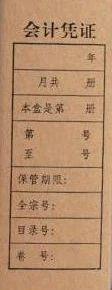 会计凭证
年
月共 册
本盒是第 册
第 号
至 号
保管期限:
全宗号:
目录号:
卷 号: